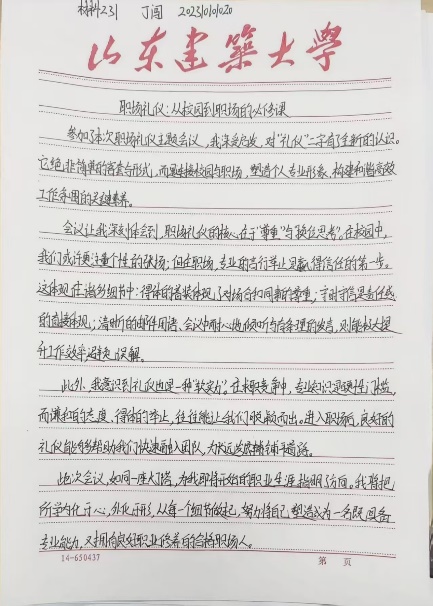 材料231 丁闯 20230101020
山东建筑大学
职场礼仪：从校园到职场的必修课
参加了本次职场礼仪主题会议，我深受启发，对“礼仪”二字有了全新的认识。
它绝非简单的客套与形式，而是连接校园与职场，塑造个人专业形象、构建和谐高效
工作氛围的关键素养。
会议让我深刻体会到，职场礼仪的核心在于“尊重”与“换位思考”。在校园中，
我们或许更注重个性的张扬；但在职场，专业的言行举止是赢得信任的第一步。
这体现在诸多细节中：得体的着装体现了对场合和同事的尊重；守时守信是责任感
的直接体现；清晰的邮件用语、会议中耐心地倾听与有条理的发言，则能极大提
升工作效率，避免误解。
此外，我意识到礼仪也是一种“软实力”。在求职竞争中，专业知识是硬性门槛，
而谦和的态度、得体的举止，往往能让我们脱颖而出。进入职场后，良好的
礼仪能够帮助我们快速融入团队，为长远发展铺平道路。
此次会议，如同一座灯塔，为我即将开始的职业生涯指明了方向。我将把
所学内化于心，外化于形，从每一个细节做起，努力将自己塑造成为一名既具备
专业能力，又拥有良好职业修养的合格职场人。
14-650437 第 页